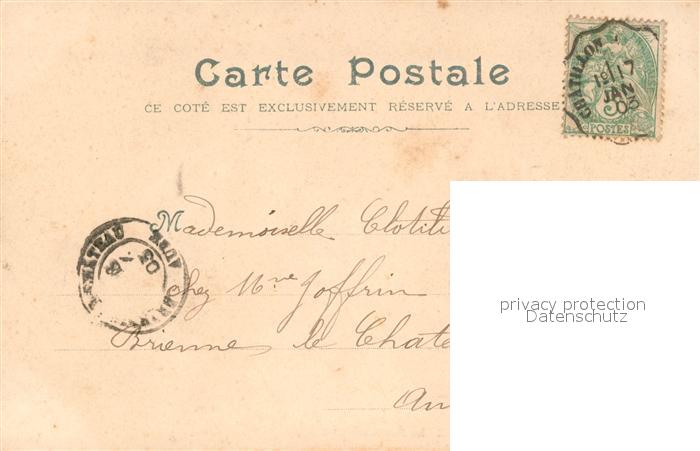 Carte Postale
CE COTÉ EST EXCLUSIVEMENT RÉSERVÉ A L'ADRESSE
CHATILLON
17
JAN
03
POSTES
Mademoiselle Clotil
chez Mme Joffrin
Brienne le Chate
Au
CHATEAU AUBE
03
privacy protection
Datenschutz